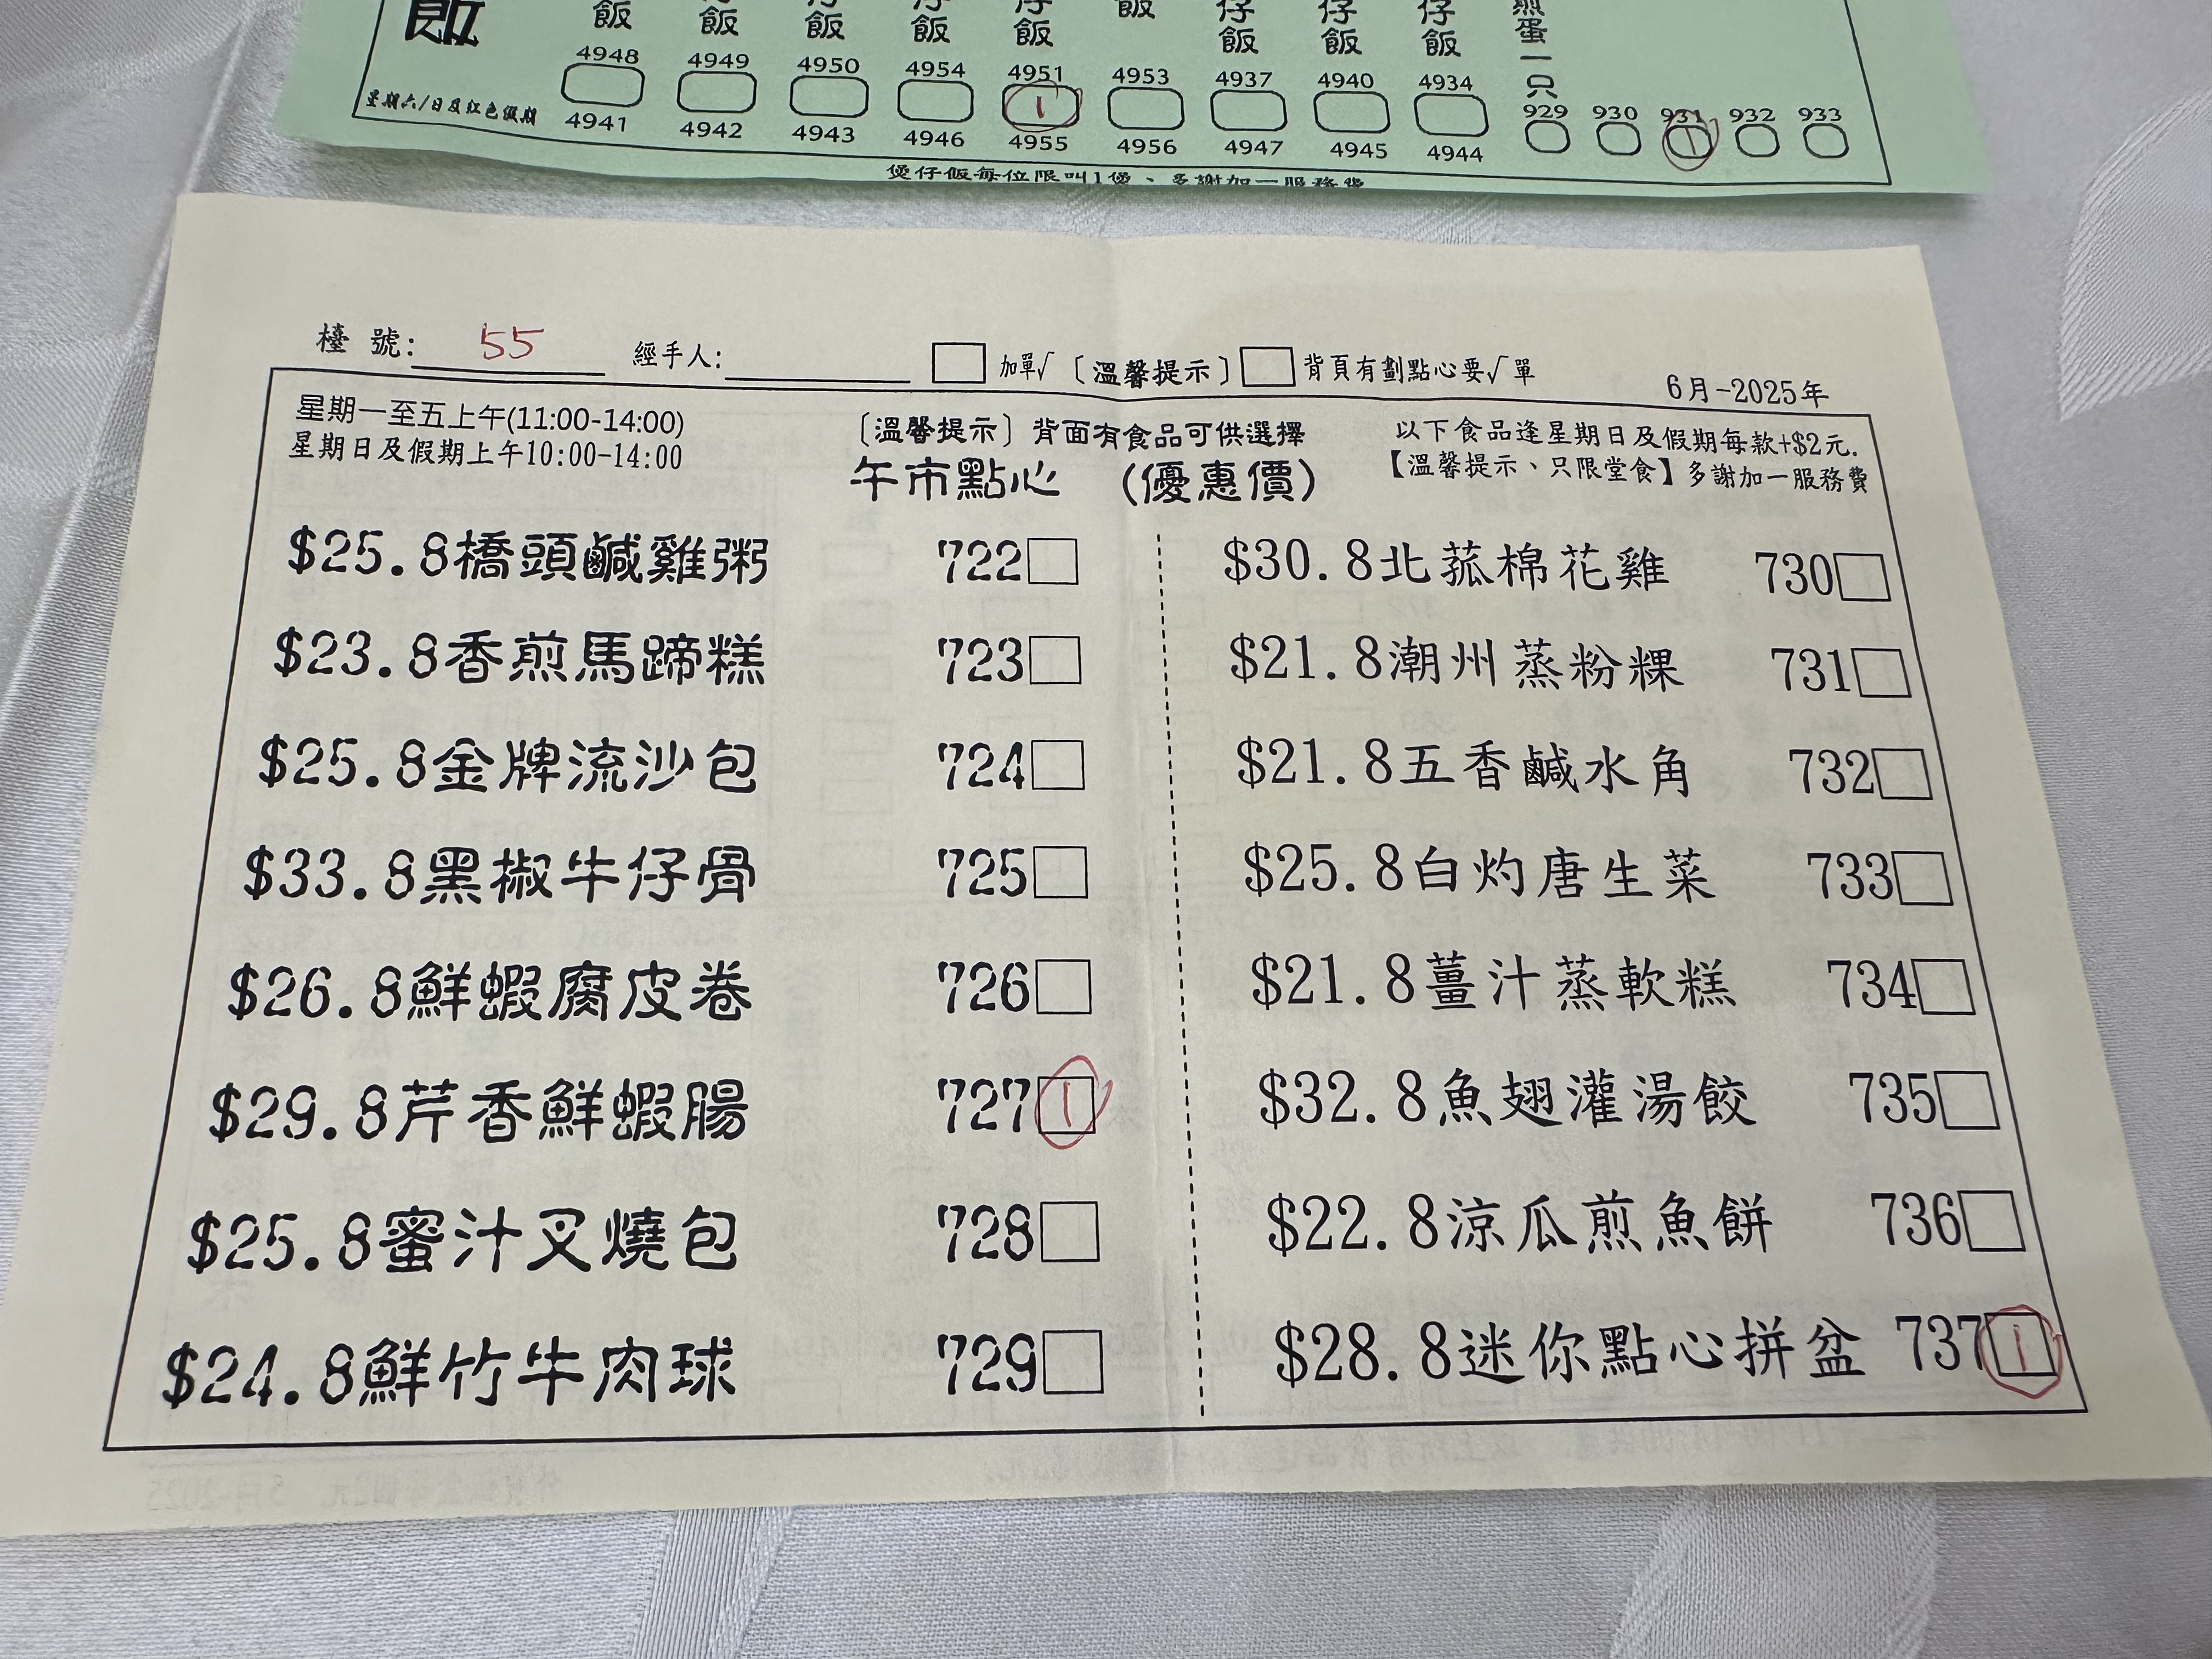 飯 飯 飯 仔飯 仔飯 飯 仔飯 仔飯 仔飯 煎蛋一只
4948 4949 4950 4954 4951 4953 4937 4940 4934
1
929 930 931 932 933
1
星期六/日及紅色假期 4941 4942 4943 4946 4955 4956 4947 4945 4944
煲仔飯每位限叫1煲、多謝加一服務費
檯 號: 55 經手人: 加單√ 〔溫馨提示〕 背頁有劃點心要√單
6月-2025年
星期一至五上午(11:00-14:00)
星期日及假期上午10:00-14:00
〔溫馨提示〕背面有食品可供選擇
午市點心 (優惠價)
以下食品逢星期日及假期每款+$2元.
【溫馨提示、只限堂食】多謝加一服務費
$25.8橋頭鹹雞粥 722
$23.8香煎馬蹄糕 723
$25.8金牌流沙包 724
$33.8黑椒牛仔骨 725
$26.8鮮蝦腐皮卷 726
$29.8芹香鮮蝦腸 727 1
$25.8蜜汁叉燒包 728
$24.8鮮竹牛肉球 729
$30.8北菰棉花雞 730
$21.8潮州蒸粉粿 731
$21.8五香鹹水角 732
$25.8白灼唐生菜 733
$21.8薑汁蒸軟糕 734
$32.8魚翅灌湯餃 735
$22.8涼瓜煎魚餅 736
$28.8迷你點心拼盆 737 1